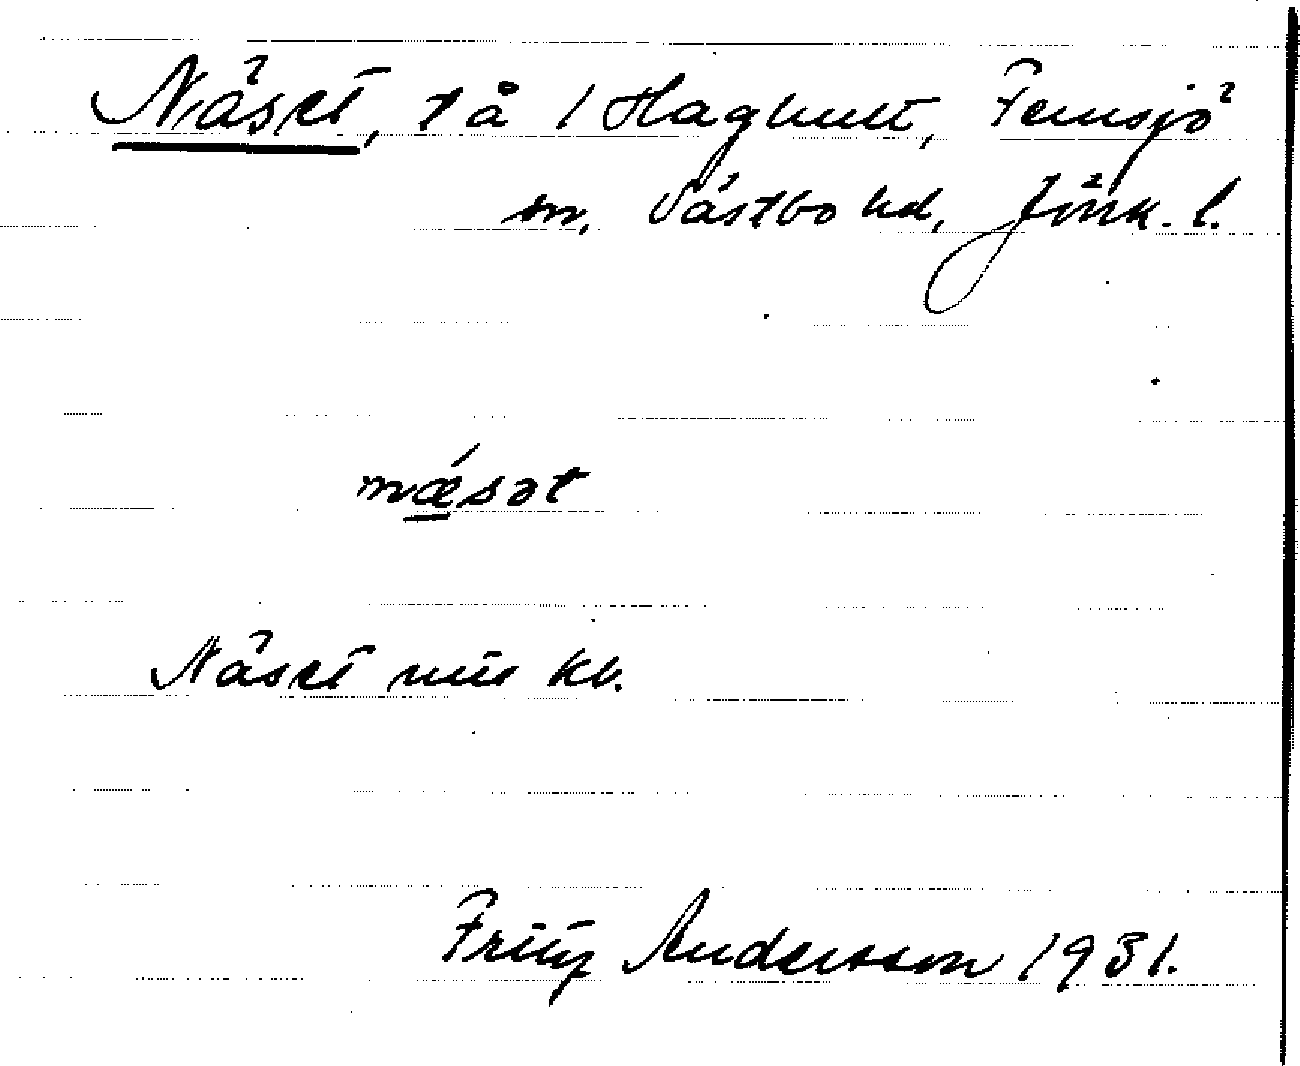 Näset, t å 1 Haghult, Femsjö
sn, Västbo hd, Jönk. l.
nǽsət
Näset nie kb.
Fritz Andersson 1931.